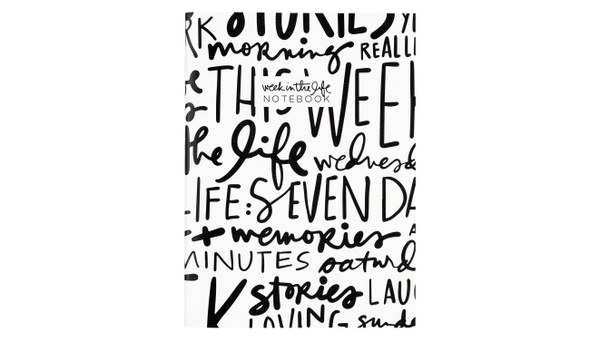 RK STORIES
morning REALL
THIS WEEK
week in the life
NOTEBOOK
the life wednesd
LIFE: SEVEN DA
+ memories
MINUTES saturd
K stories LAU
LOVING sund